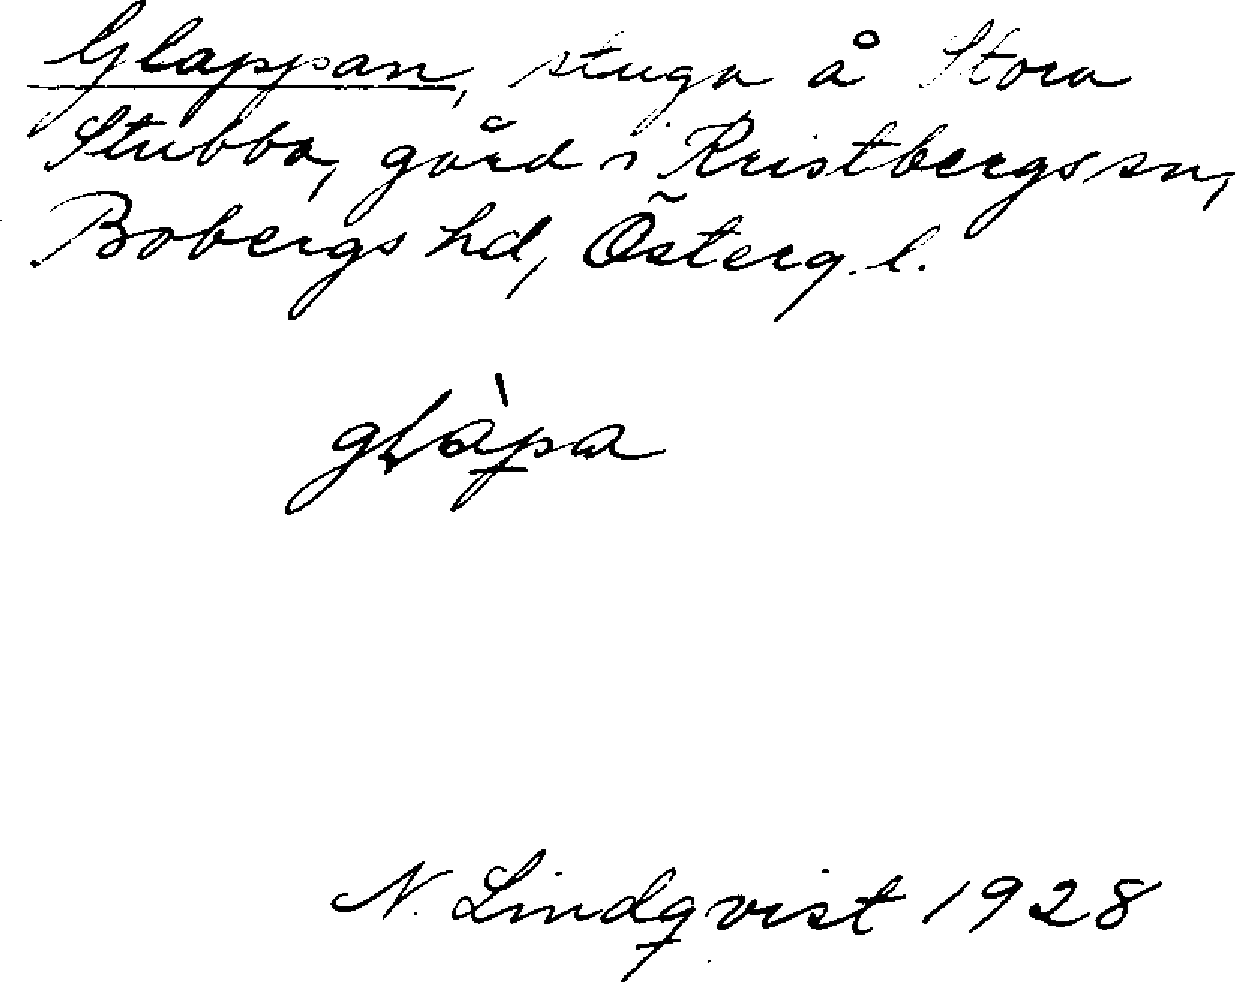 Glappan, stuga å Stora
Stubbo, gård i Kristbergs sn,
Bobergs hd, Österg. l.
glàpa
N. Lindqvist 1928